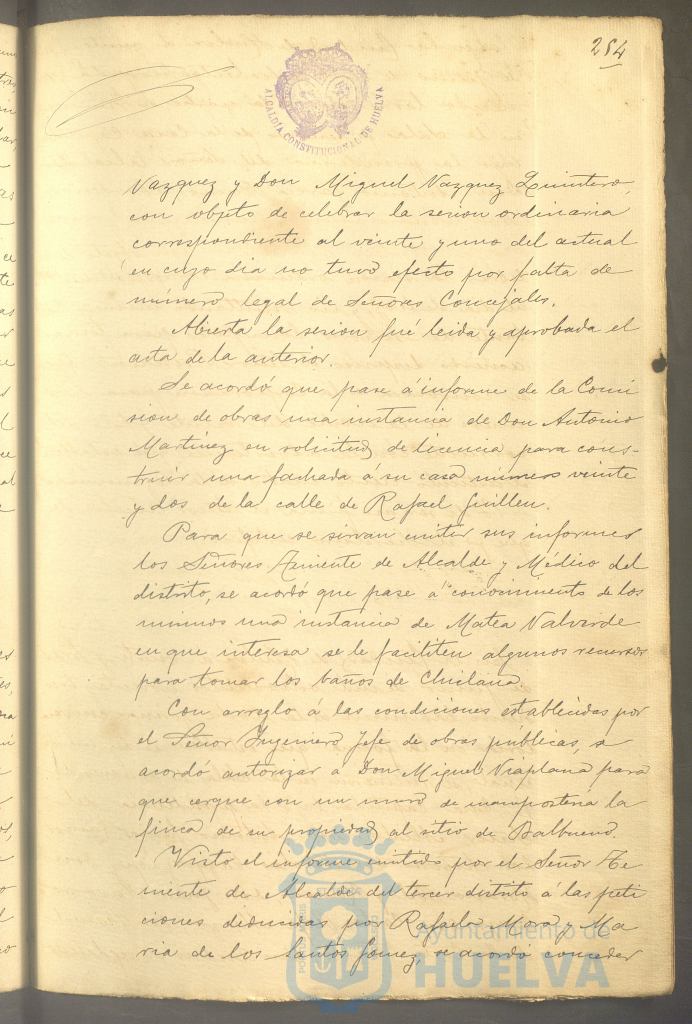 254
ALCALDÍA CONSTITUCIONAL DE HUELVA
Vazquez y Don Miguel Vazquez Quintero,
con objeto de celebrar la sesion ordinaria
correspondiente al veinte y uno del actual
en cuyo dia no tuvo efecto por falta de
número legal de Señores Concejales.
Abierta la sesion fué leida y aprobada el
acta de la anterior.
Se acordó que pase á informe de la Comi
sion de obras una instancia de Don Antonio
Martinez en solicitud de licencia para cons-
truir una fachada á su casa número veinte
y dos de la calle de Rafael Guillen.
Para que se sirvan emitir sus informes
los Señores Teniente de Alcalde y Médico del
distrito, se acordó que pase á conocimiento de los
mismos una instancia de Matea Valverde
en que interesa se le faciliten algunos recursos
para tomar los baños de Chiclana.
Con arreglo á las condiciones establecidas por
el Señor Ingeniero Jefe de obras públicas, se
acordó autorizar a Don Miguel Viaplana para
que cerque con un muro de mamposteria la
finca de su propiedad al sitio de Balbueno.
Visto el informe emitido por el Señor Te
niente de Alcalde del tercer distrito á las peti
ciones deducidas por Rafaela Mora y Ma
ria de los Santos Gomez, se acordó conceder
Ayuntamiento de
HUELVA